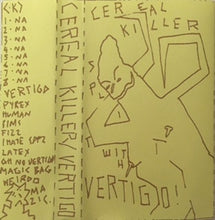 1. NA
2. NA
3. NA
4. NA
5. NA
6. NA
7. NA
8. NA
VERTIGO
PYREX
HUMAN
SIMS
FIZZ
I HATE
LATEX
GH NO VERTIGO
MAGIC BAG
WEIRDO
CEREAL KILLER/VERTIGO
CEREAL
KILLER
SPLIT
WITH
VERTIGO!!